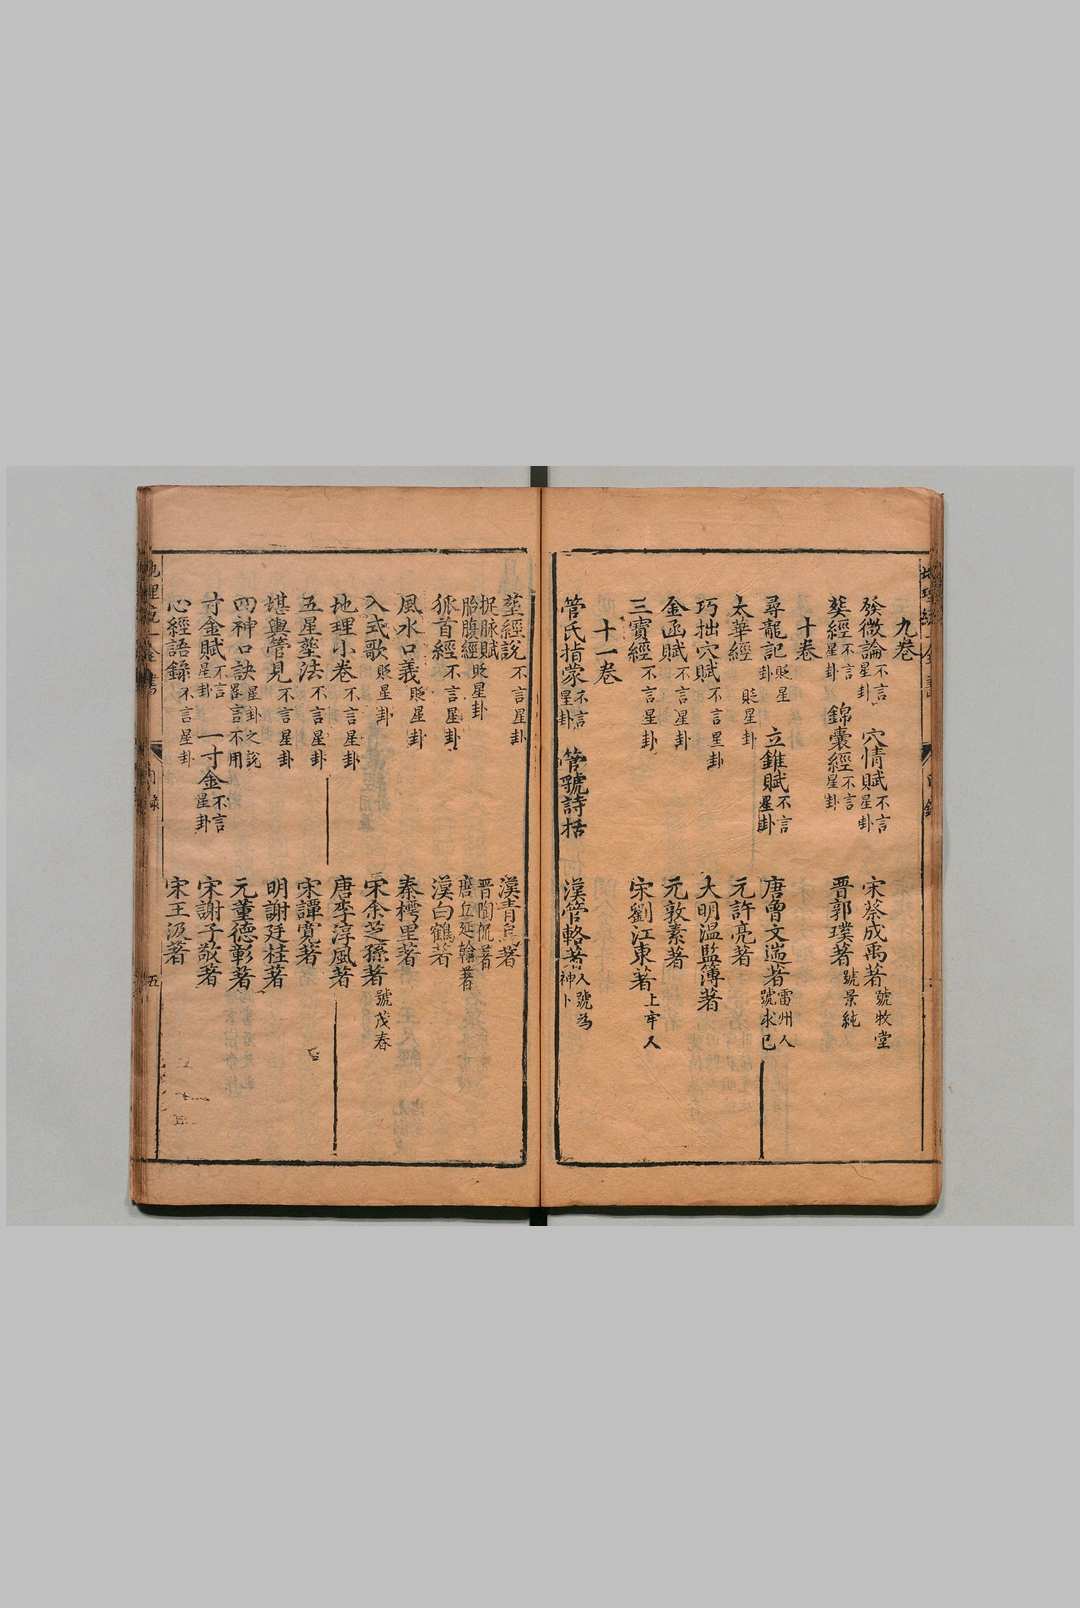 九卷
發微論不言星卦 穴情賦不言星卦 宋蔡成禹著號牧堂
葬經不言星卦 錦囊經不言星卦 晋郭璞著號景純
十卷
尋龍記貶星卦 立錐賦不言星卦 唐曾文遄著雷州人號求已
太華經貶星卦 元許亮著
巧拙穴賦不言星卦 大明温監簿著
金函賦不言星卦 元敦素著
三寳經不言星卦 宋劉江東著上牢人
十一卷
管氏指蒙不言星卦 管虢詩括 漢管輅著人號為神卜
地理統一全書 目錄
葬經說不言星卦 漢青烏著
捉脉賦 晋陶侃著
胎腹經貶星卦 唐丘延翰著
狐首經不言星卦 漢白鶴著
風水口義貶星卦 秦樗里著
入式歌貶星卦 宋余芝孫著號茂春
地理小卷不言星卦 唐李淳風著
五星葬法不言星卦 宋譚寬著
堪輿管見不言星卦 明謝廷桂著
四神口訣星卦之說畧言不用 元董德彰著
寸金賦不言星卦 一寸金不言星卦 宋謝子敬著
心經語錄不言星卦 宋王伋著
地理統一全書 目錄 五